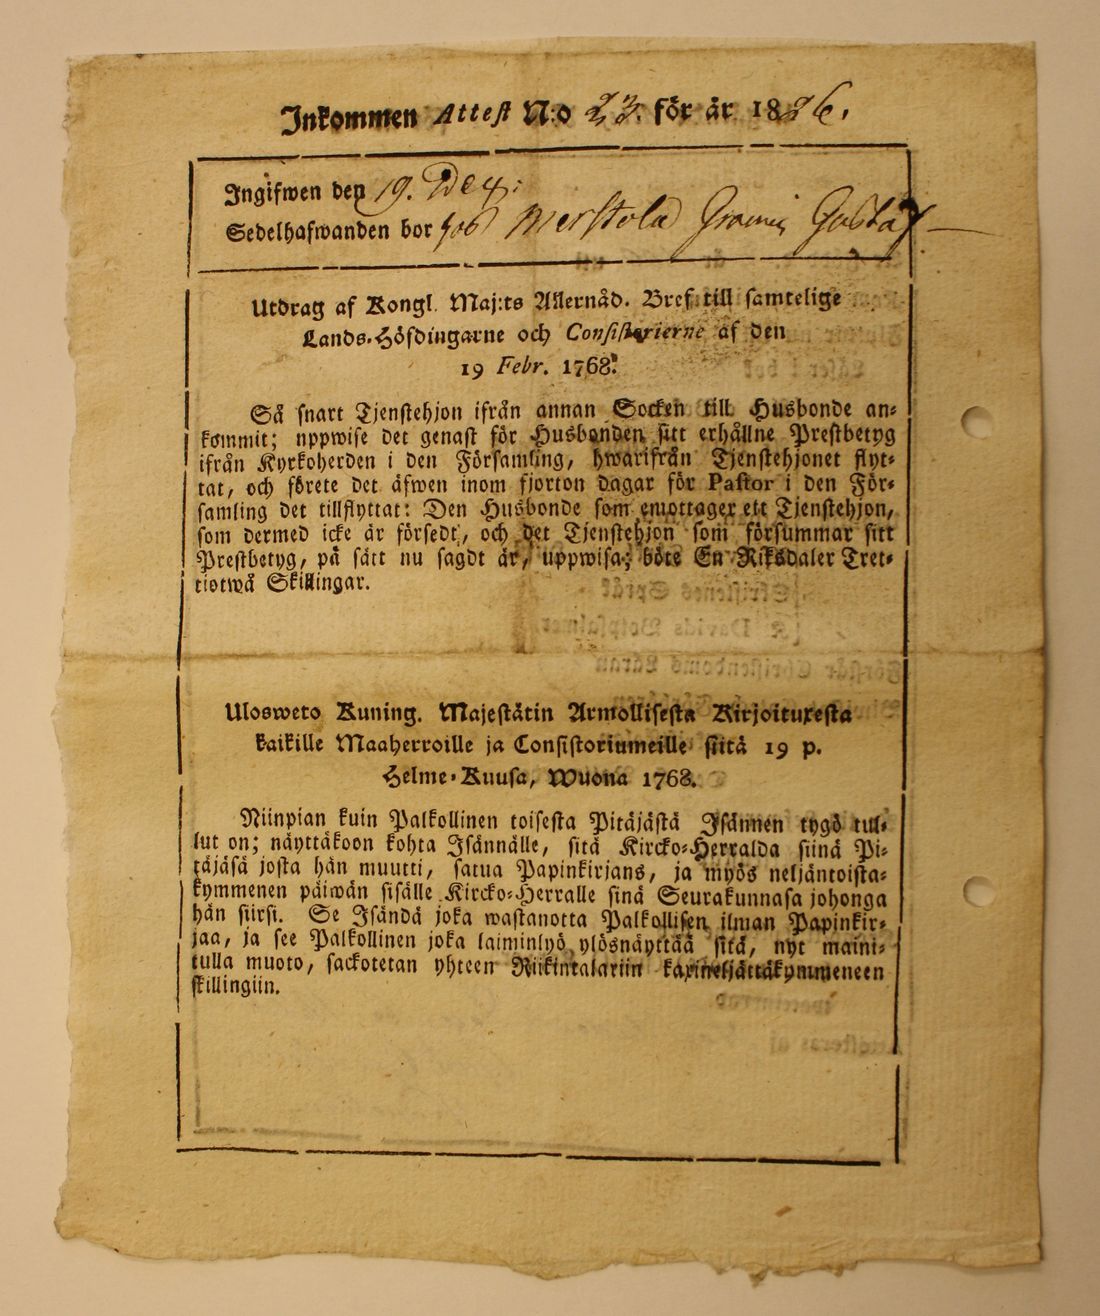 Inkommen Attest N:o 23. för år 1826.
Ingifwen den 19. Dec:
Sedelhafwanden bor hos Merstola Gustaf
Utdrag af Kongl. Maj:ts Allernåd. Bref till samtelige
Lands-Höfdingarne och Consistorierne af den
19 Febr. 1768.
Så snart Tjenstehjon ifrån annan Socken till Husbonde an-
kommit; uppwise det genast för Husbonden sitt erhållne Prestbetyg
ifrån Kyrkoherden i den Församling, hwarifrån Tjenstehjonet flyt-
tat, och förete det äfwen inom fjorton dagar för Pastor i den För-
samling det tillflyttat: Den Husbonde som emottager ett Tjenstehjon,
som dermed icke är försedt, och det Tjenstehjon som försummar sitt
Prestbetyg, på sätt nu sagdt är, uppwisa; böte En Riksdaler Tret-
tiotwå Skillingar.
Ulosweto Kuning. Majestätin Armollisesta Kirjoituxesta
kaikille Maaherroille ja Consistoriumeille siitä 19 p.
Helme-Kuusa, Wuona 1768.
Niinpian kuin Palkollinen toisesta Pitäjästä Isännen tygö tul-
lut on; näyttäkoon kohta Isännälle, sitä Kircko-Herralda siinä Pi-
täjäsä josta hän muutti, satua Papinkirjans, ja myös neljäntoista-
kymmenen päiwän sisälle Kircko-Herralle sinä Seurakunnasa johonga
hän siirsi. Se Isändä joka wastanotta Palkollisen ilman Papinkir-
jaa, ja see Palkollinen joka laiminlyö ylösnäyttää sitä, nyt maini-
tulla muoto, sackotetan yhteen Riikintalariin kaxineljättäkymmeneen
skillingiin.